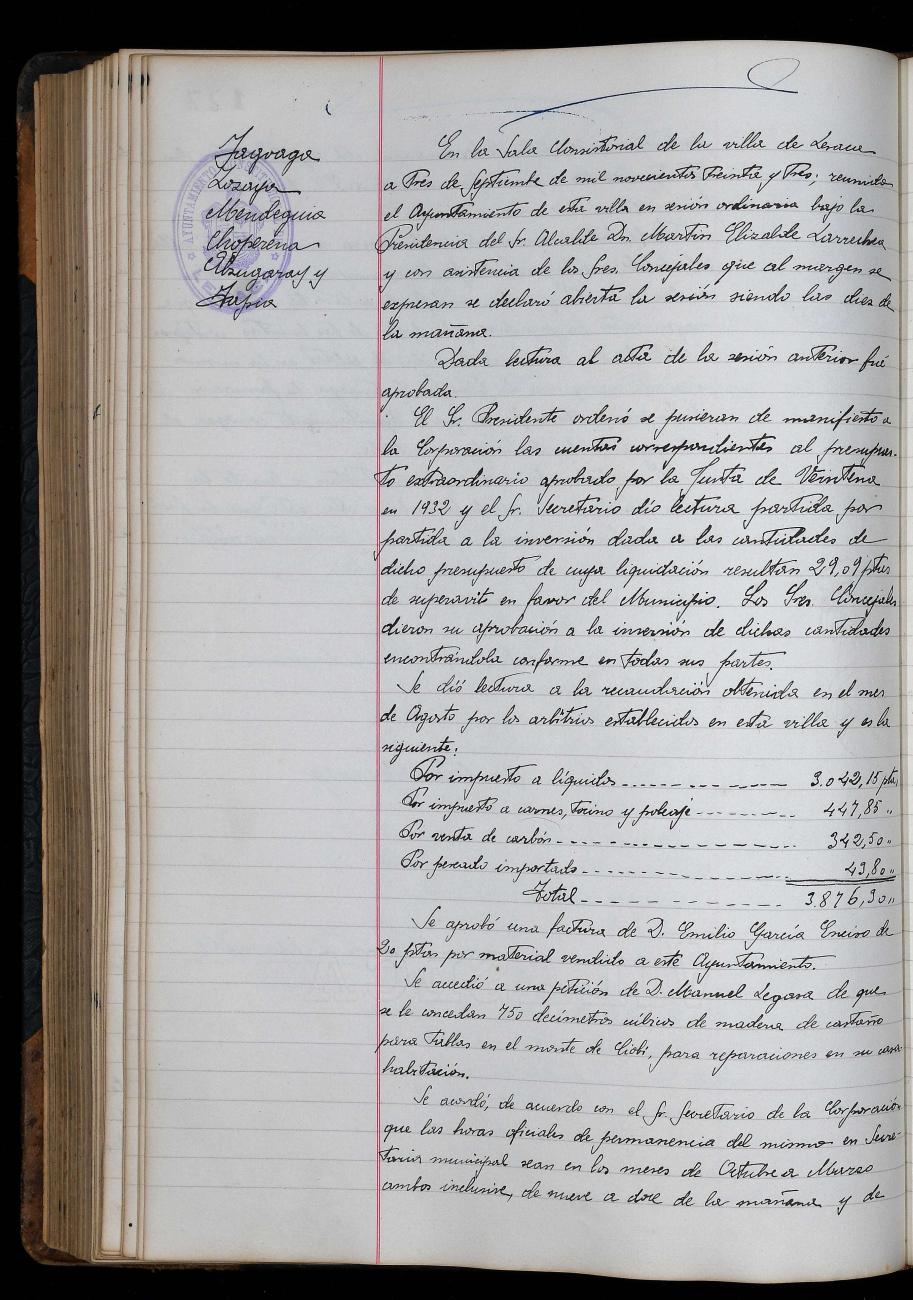 Jaguaga
Lozaya
Mendeguia
Choperena
Alzugaray y
Tapia
En la Sala Consistorial de la villa de Lesaca
a Tres de Septiembre de mil novecientos Treinta y Tres; reunido
el Ayuntamiento de esta villa en sesión ordinaria bajo la
Presidencia del Sr. Alcalde Dn. Martin Elizalde Larrechea
y con asistencia de los Sres. Concejales que al margen se
expresan se declaró abierta la sesión siendo las diez de
la mañana.
Dada lectura al acta de la sesión anterior fué
aprobada.
El Sr. Presidente ordenó se pusieran de manifiesto a
la Corporación las cuentas correspondientes al presupues-
to extraordinario aprobado por la Junta de Veintena
en 1932 y el Sr. Secretario dio lectura partida por
partida a la inversión dada a las cantidades de
dicho presupuesto de cuya liquidación resultan 29,09 ptas
de superavit en favor del Municipio. Los Sres. Concejales
dieron su aprobación a la inversión de dichas cantidades
encontrándola conforme en todas sus partes.
Se dió lectura a la recaudación obtenida en el mes
de Agosto por los arbitrios establecidos en esta villa y es la
siguiente:
Por impuesto a líquidos 3.042,15 ptas
Por impuesto a carnes, tocino y poteaje 447,85 "
Por venta de carbón 342,50 "
Por pescado importado 43,80 "
Total 3.876,30 "
Se aprobó una factura de D. Emilio García Enciso de
20 ptas por material vendido a este Ayuntamiento.
Se accedió a una petición de D. Manuel Legasa de que
se le concedan 750 decímetros cúbicos de madera de castaño
para tablas en el monte de, para reparaciones en su casa-
habitación.
Se acordó, de acuerdo con el Sr. Secretario de la Corporación
que las horas oficiales de permanencia del mismo en Secre-
taria municipal sean en los meses de Octubre a Marzo
ambos inclusive, de nueve a doce de la mañana y de